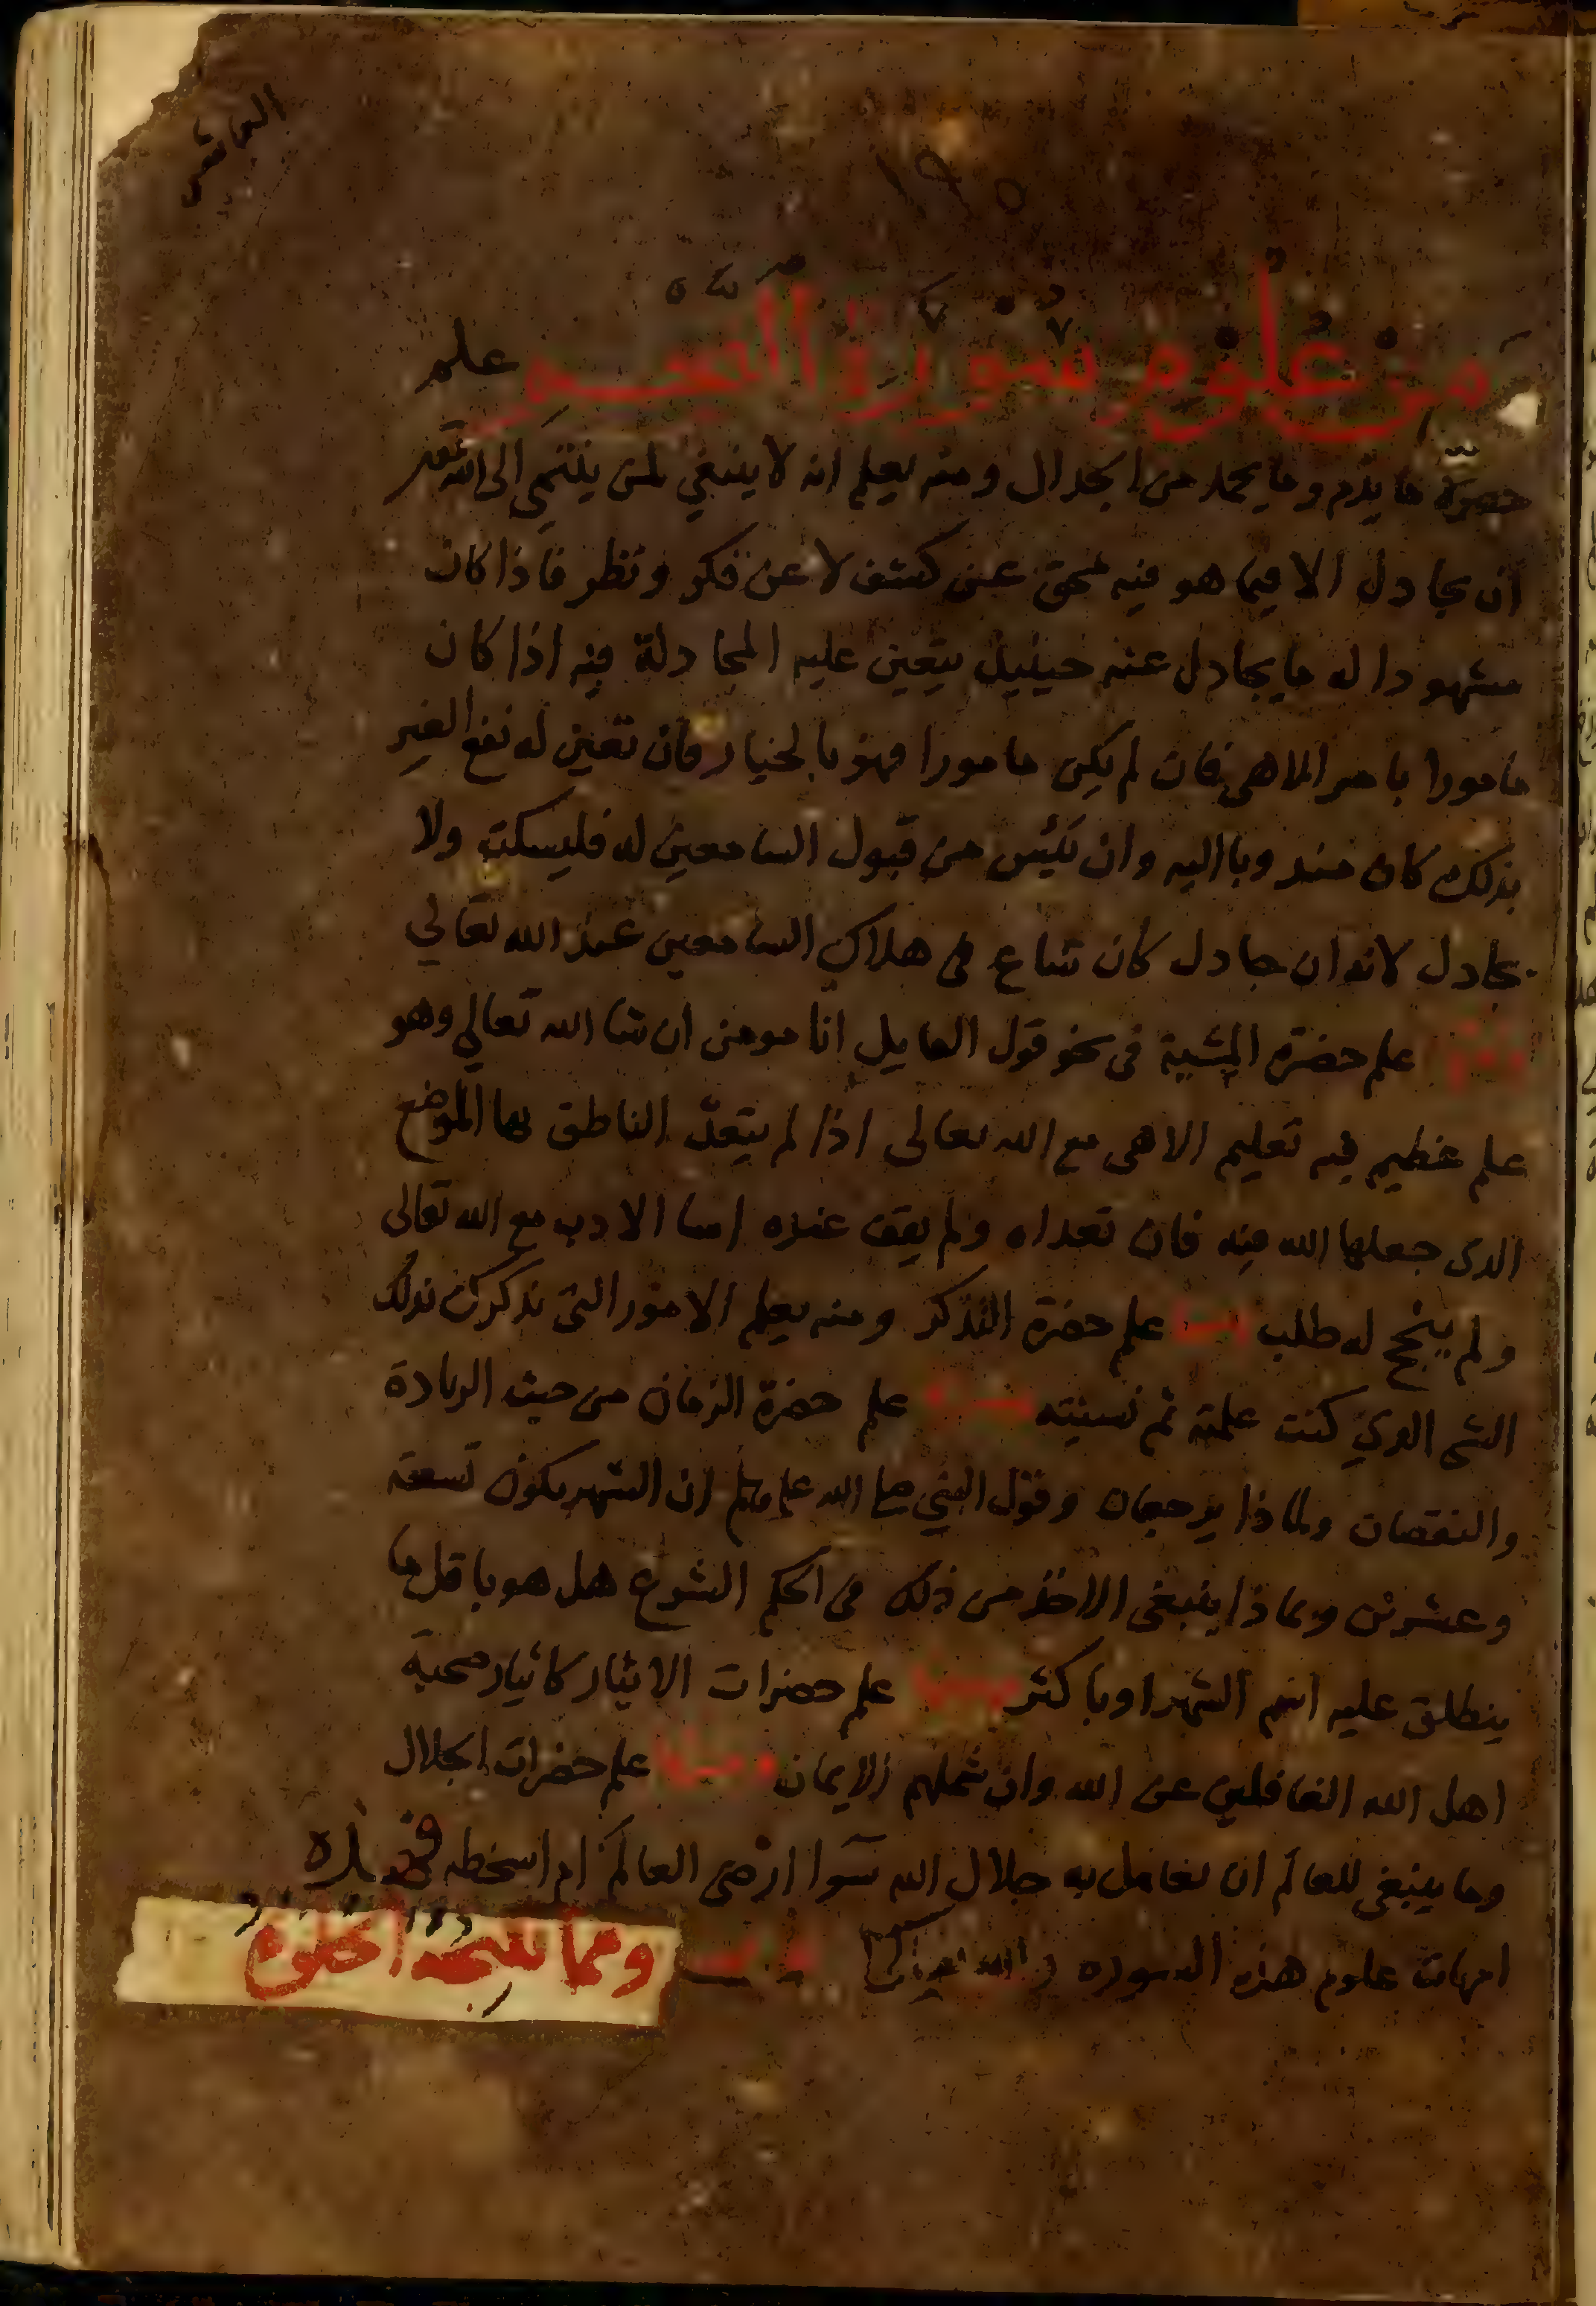 من علوم سورة علم
حضرة ما يذم وما يحمد من الجدال ومنه يعلم انه لا ينبغي لمن ينتمي الى الله
ان يجادل الا فيما هو فيه محق عن كشف لا عن فكر ونظر فاذا كان
مشهودا له ما يجادل عنه حينيذ يتعين عليه المجادلة فيه اذا كان
مامورا بامر الاهي فان لم يكن مامورا فهو بالخيار فان تعين له نفع الغير
بذلك كان مندوبا اليه وان يئس من قبول السامعين له فليسكت ولا
يجادل لانه ان جادل كان ساع في هلاك السامعين عند الله تعالي
ومنها علم حضرة المشية في نحو قول القايل انا مومن ان شا الله تعالي وهو
علم عظيم فيه تعليم الاهي مع الله تعالى اذا لم يتعد الناطق بها الموضع
الذى جعلها الله فيه فان تعداه ولم يقف عنده اسا الادب مع الله تعالى
ولم ينجح له طلب ومنها علم حضرة التذكر ومنه يعلم الامور التي تذكرك بذلك
الشي الذي كنت علمته ثم نسيته ومنها علم حضرة الزمان من حيث الزيادة
والنقصان ولماذا يرجعان وقول النبي صلى الله عليه وسلم ان الشهر يكون تسعة
وعشرين وبماذا ينبغي الاخذ من ذلك في الحكم المشروع هل هو باقل ما
ينطلق عليه اسم الشهر او باكثر ومنها علم حضرات الايثار كايثار صحبة
اهل الله الغافلين عن الله وان شملهم الايمان ومنها علم حضرات الجلال
وما ينبغي للعالم ان يعامل به جلال الله سوا ارضى العالم ام اسخطه فهذه
امهات علوم هذه السوره